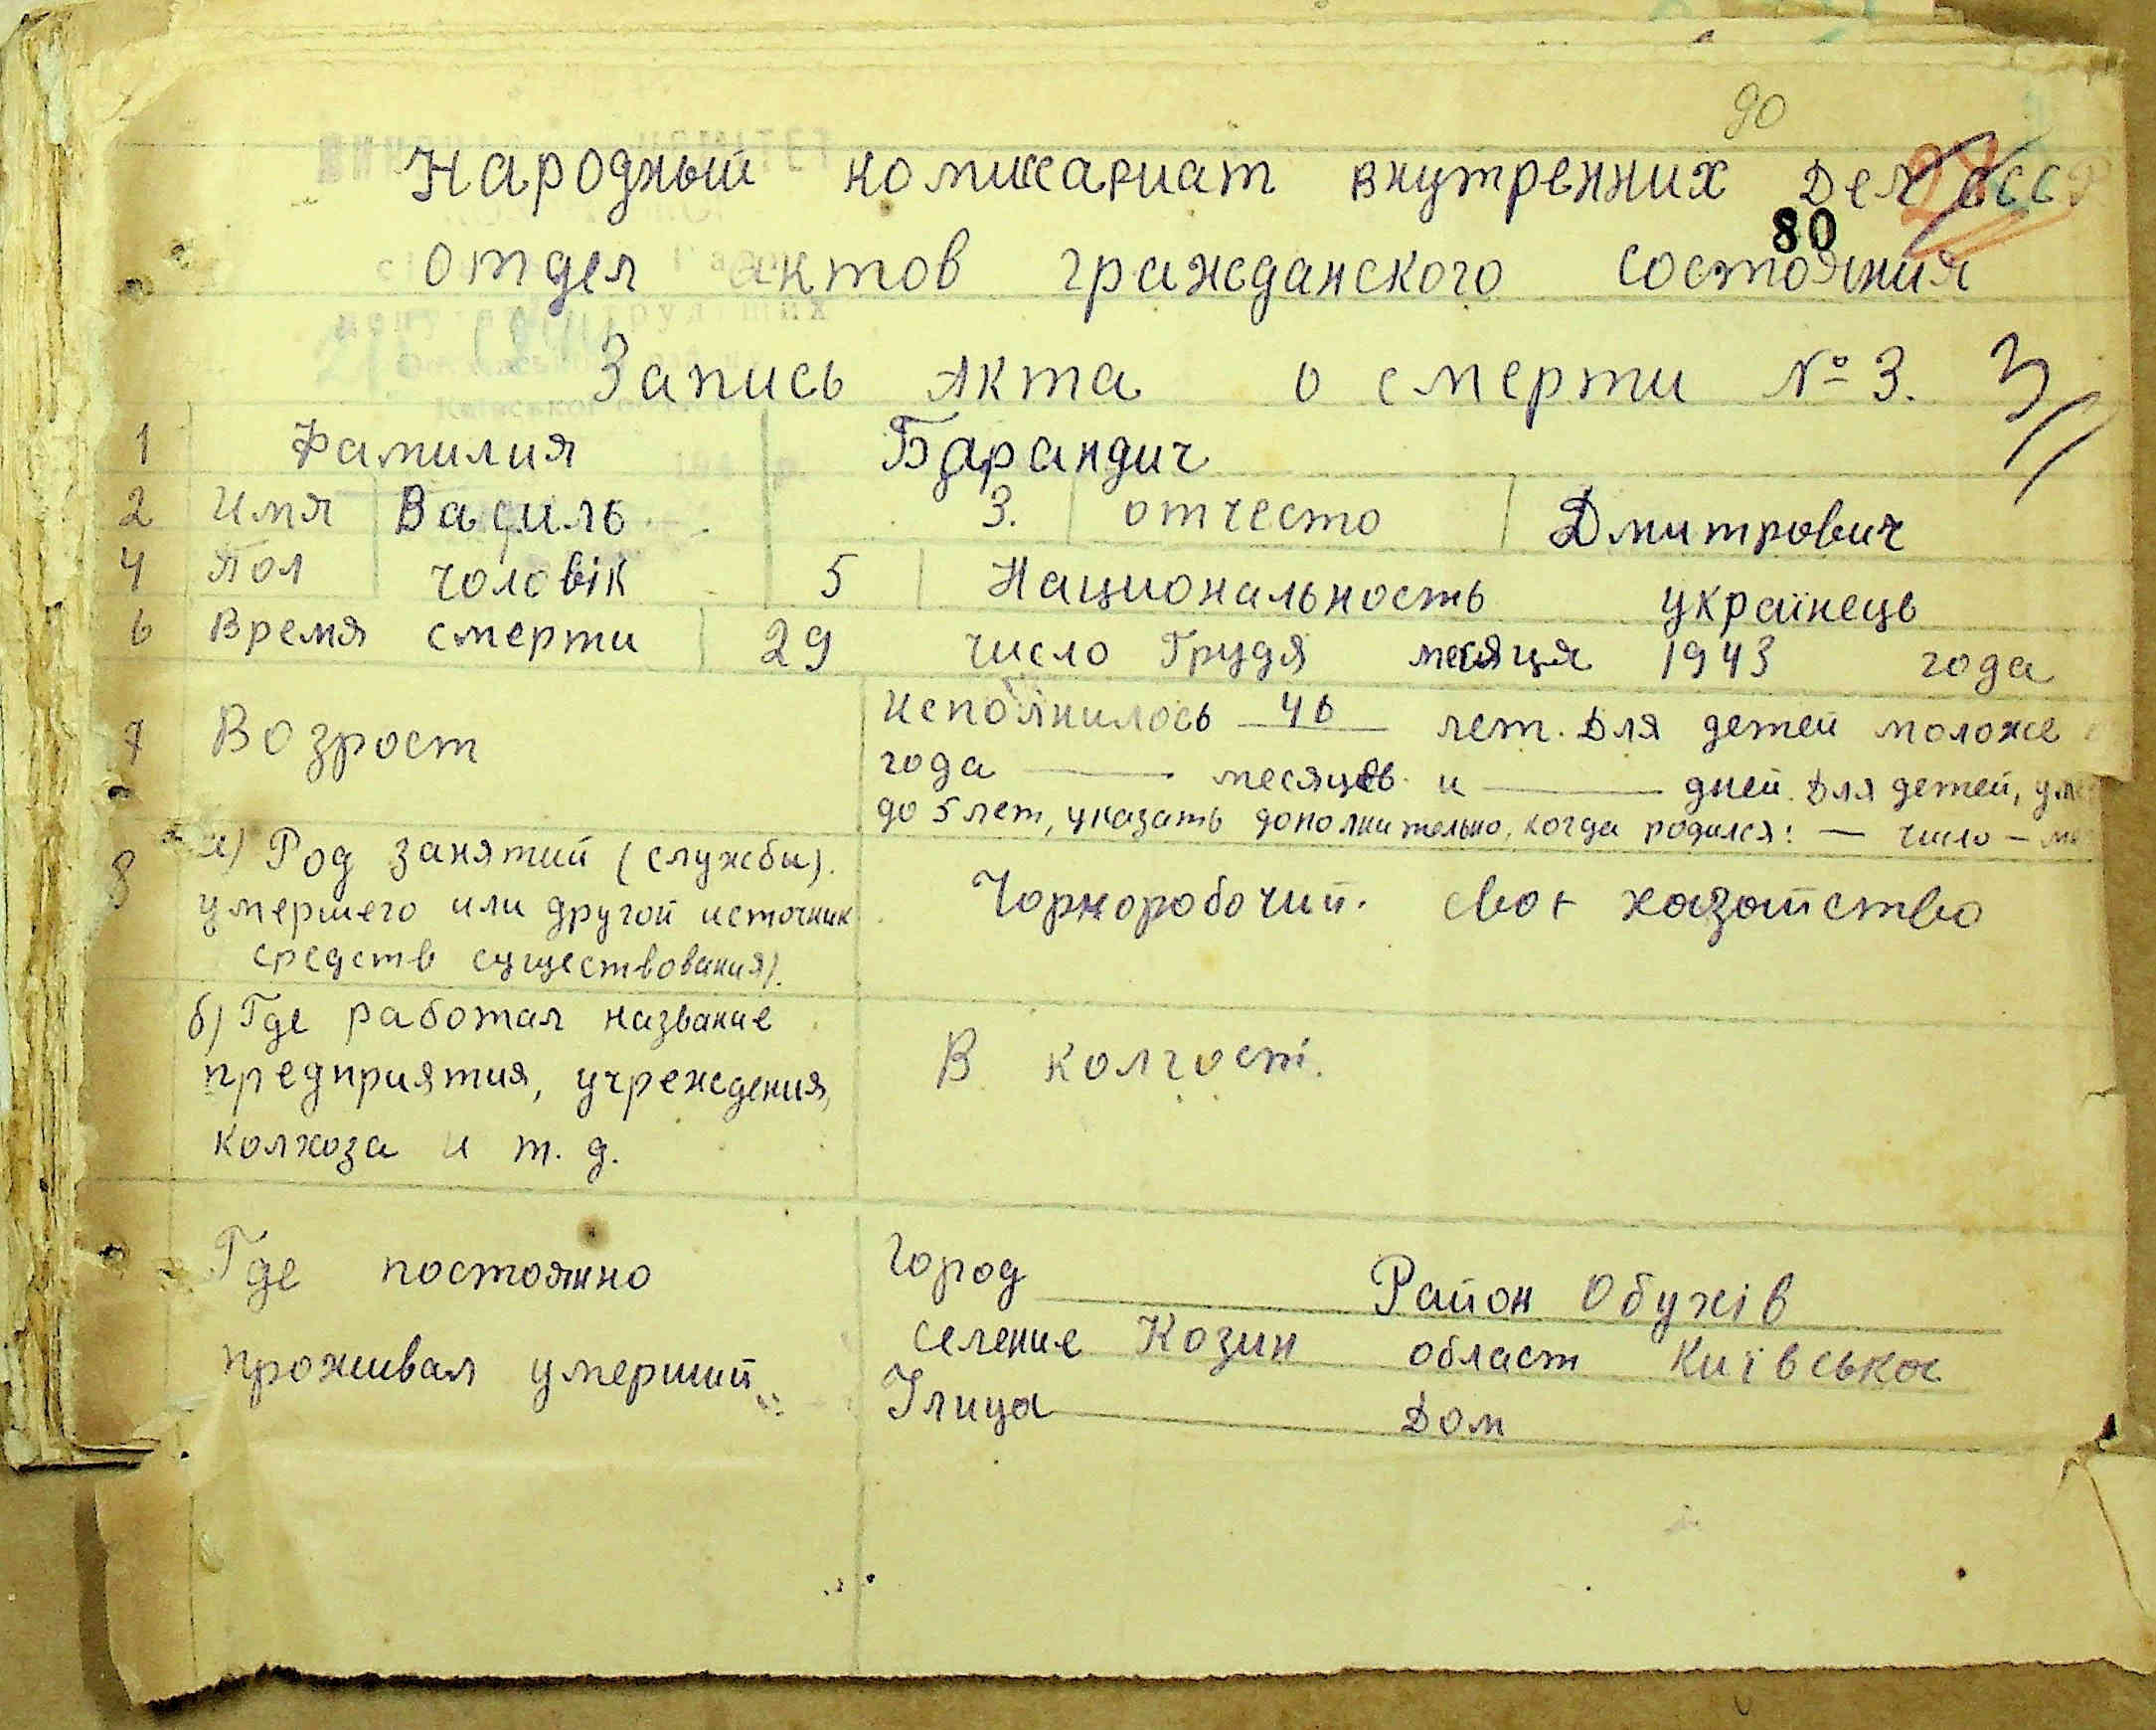 90
Народный комиссариат внутренних Дел СССР
80
Отдел актов гражданского состояния
Запись Акта о смерти № 3. 3
1 Фамилия Барандич
2 Имя Василь 3. отчесто Дмитрович
4 Пол чоловік 5 Национальность українець
6 Время смерти 29 число Грудя месяця 1943 года
7 Возрост Исполнилось 46 лет. Для детей моложе
года — месяцев и — дней. Для детей,
до 5 лет, указать дополнительно, когда родился: — число —
8 а) Род занятий (службы). Чорноробочий. своє хазайство
умершего или другой источник
средств существования).
б) Где работал название
предприятия, учреждения, В колгості.
колхоза и т. д.
Где постоянно Город Район Обухів
проживал умерший селение Козин област Київська
Улица Дом